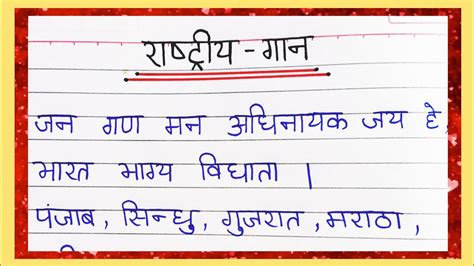 राष्ट्रीय - गान
जन गण मन अधिनायक जय हे,
भारत भाग्य विधाता |
पंजाब, सिन्धु, गुजरात, मराठा,